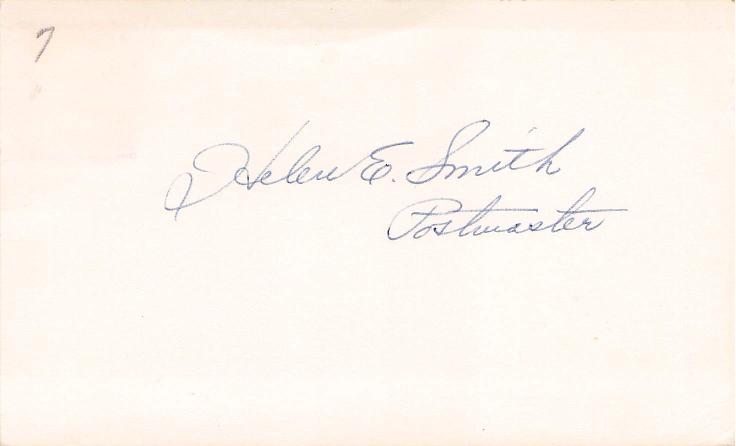 7
Helen E. Smith
Postmaster